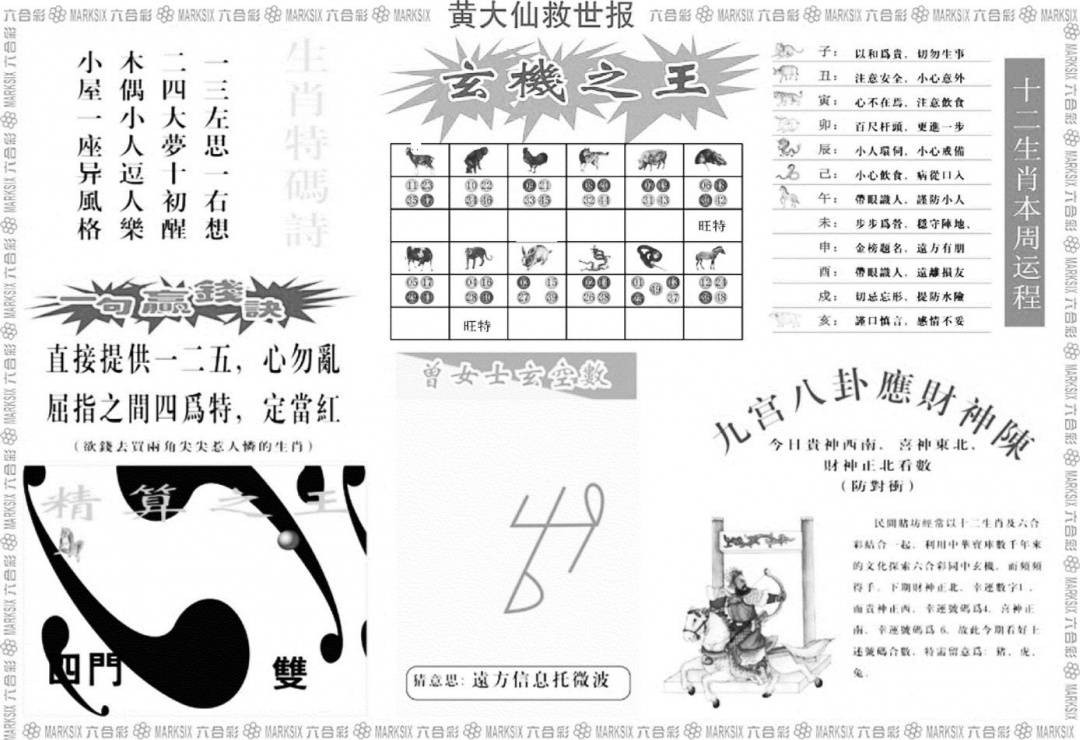 黄大仙救世报
MARKSIX 六合彩
生肖特碼詩
一三左思一右想
二四大夢十初醒
木偶小人逗人樂
小屋一座异風格
玄機之王
旺特
旺特
十二生肖本周运程
子：以和爲貴，切勿生事
丑：注意安全，小心意外
寅：心不在焉，注意飲食
卯：百尺杆頭，更進一步
辰：小人環伺，小心戒備
己：小心飲食，病從口入
午：帶眼識人，謹防小人
未：步步爲營，穩守陣地、
申：金榜題名，遠方有朋
酉：帶眼識人，遠離損友
戌：切忌忘形，提防水險
亥：謹口慎言，感情不妥
一句贏錢訣
直接提供一二五，心勿亂
屈指之間四爲特，定當紅
（欲錢去買兩角尖尖惹人憐的生肖）
精算之王
四門
雙
曾女士玄空數
猜意思：遠方信息托微波
九宫八卦應財神陳
今日貴神西南、喜神東北、
財神正北看數
（防對衝）
民間賭坊經常以十二生肖及六合
彩結合一起，利用中華寶庫數千年來
的文化探索六合彩同中玄機，而頻頻
得手，下期財神正北，幸運數字1，
而貴神正西，幸運號碼爲4，喜神正
南，幸運號碼爲 6，故此今期看好上
述號碼合數，特需留意爲：猪、虎、
兔。